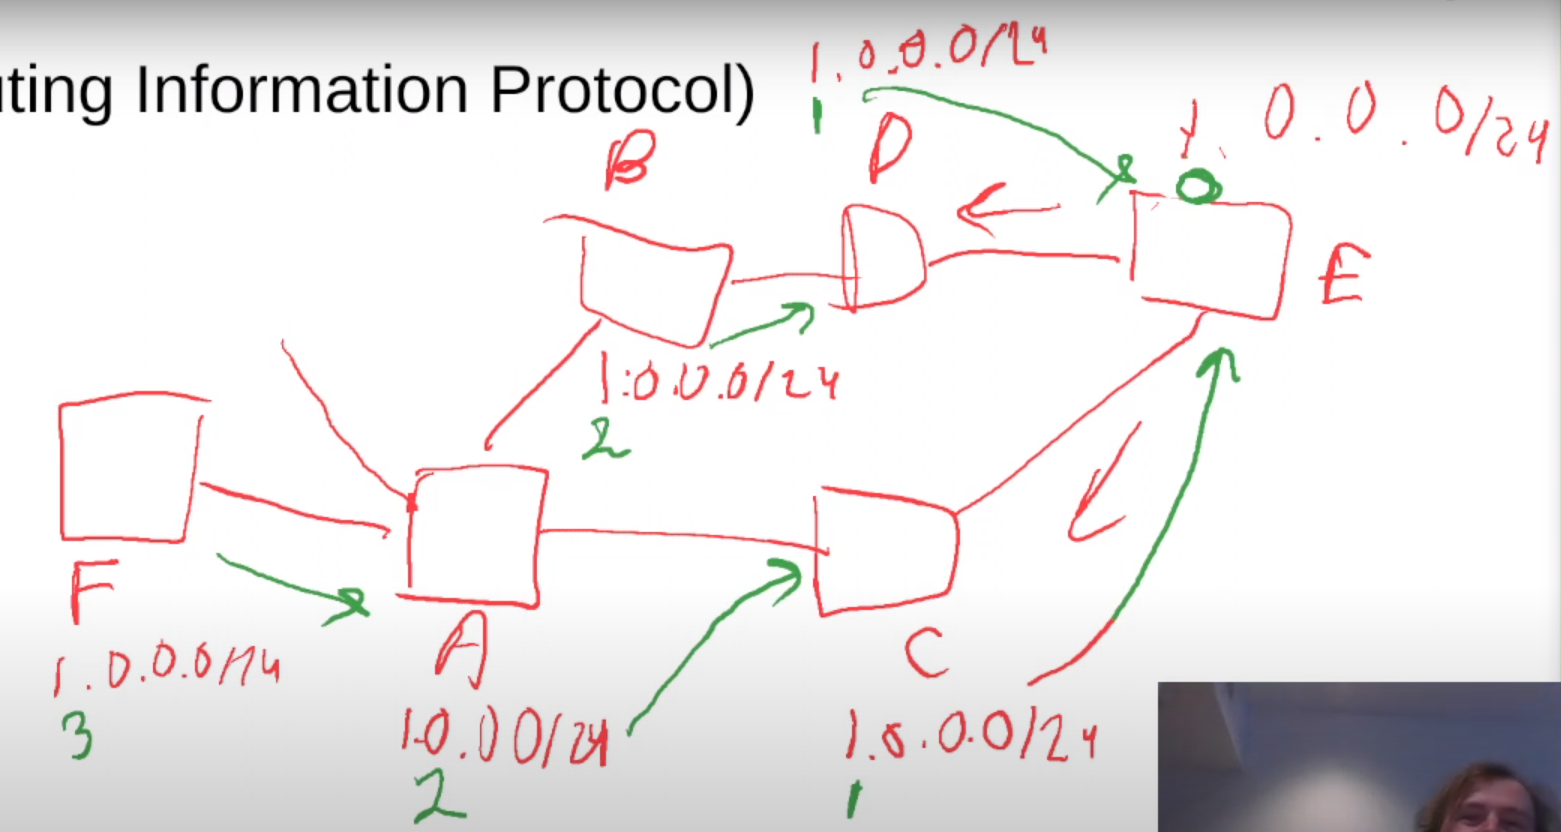 uting Information Protocol)
1.0.0.0/24
1
D
1.0.0.0/24
B
E
1.0.0.0/24
2
F
1.0.0.0/24
3
A
1.0.0.0/24
2
C
1.0.0.0/24
1